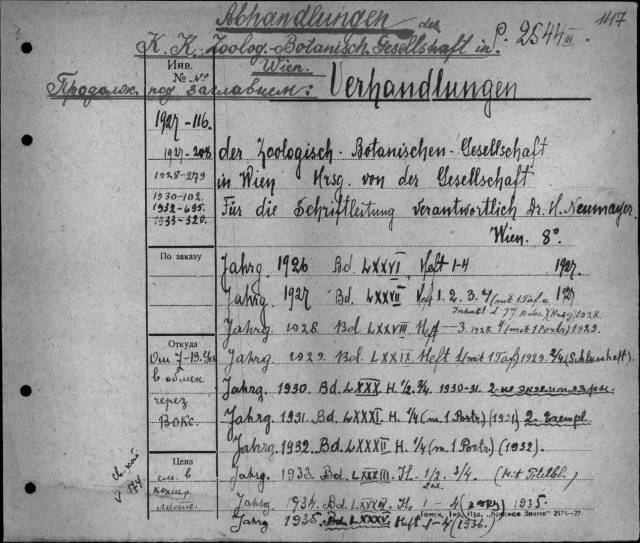 Abhandlungen der
147
K. K. Zoolog.-Botanisch. Gesellschaft in
P. 2544 III.
Wien.
Инв. № No
Продолж. под заглавием: Verhandlungen
1927-116.
1927-208
1928-279
1930-102.
1932-695.
1933-320.
der Zoologisch-Botanischen-Gesellschaft
in Wien Hrsg. von der Gesellschaft
Für die Schriftleitung verantwortlich Dr. H. Neumayer.
Wien. 8°.
По заказу
Jahrg. 1926 Bd. LXXVI, Heft 1-4 1927.
Jahrg. 1927 Bd. LXXVII Heft 1. 2. 3. 4 (mit 1 Taf. u. 1927
Jahrg. 1928. Bd. LXXVIII Heff -3. 1928. 4 (mit 1 Portr.) 1929.
Откуда
От
в обмен
через
Вокс.
Jahrg. 1929. Bd. LXXIX Heft 1 (mit 1 Taf.) 1929. 2/4 (Schlussheft).
Jahrg. 1930. Bd. LXXX H. 1/2. 3/4. 1930-31. 2-ие экземпляры.
Jahrg. 1931. Bd. LXXXI H. 1/4 (m. 1 Portr) (1931) 2. Exempl.
Jahrg. 1932. Bd. LXXXII H. 1/4 (m. 1 Portr) (1932).
Цена
см. в
Jahrg. 1933. Bd. LXXXIII. H. 1/2 3/4. (Mit Titelbl.)
Jahrg. 1934. Bd. LXXXIV. H. 1 - 4 (2 экз) 1935.
Jahrg 1935. Bd. LXXXV. Heft 1-4 (1936.)
Томск, Тип. Изд. "Красное Знамя" 2574-27